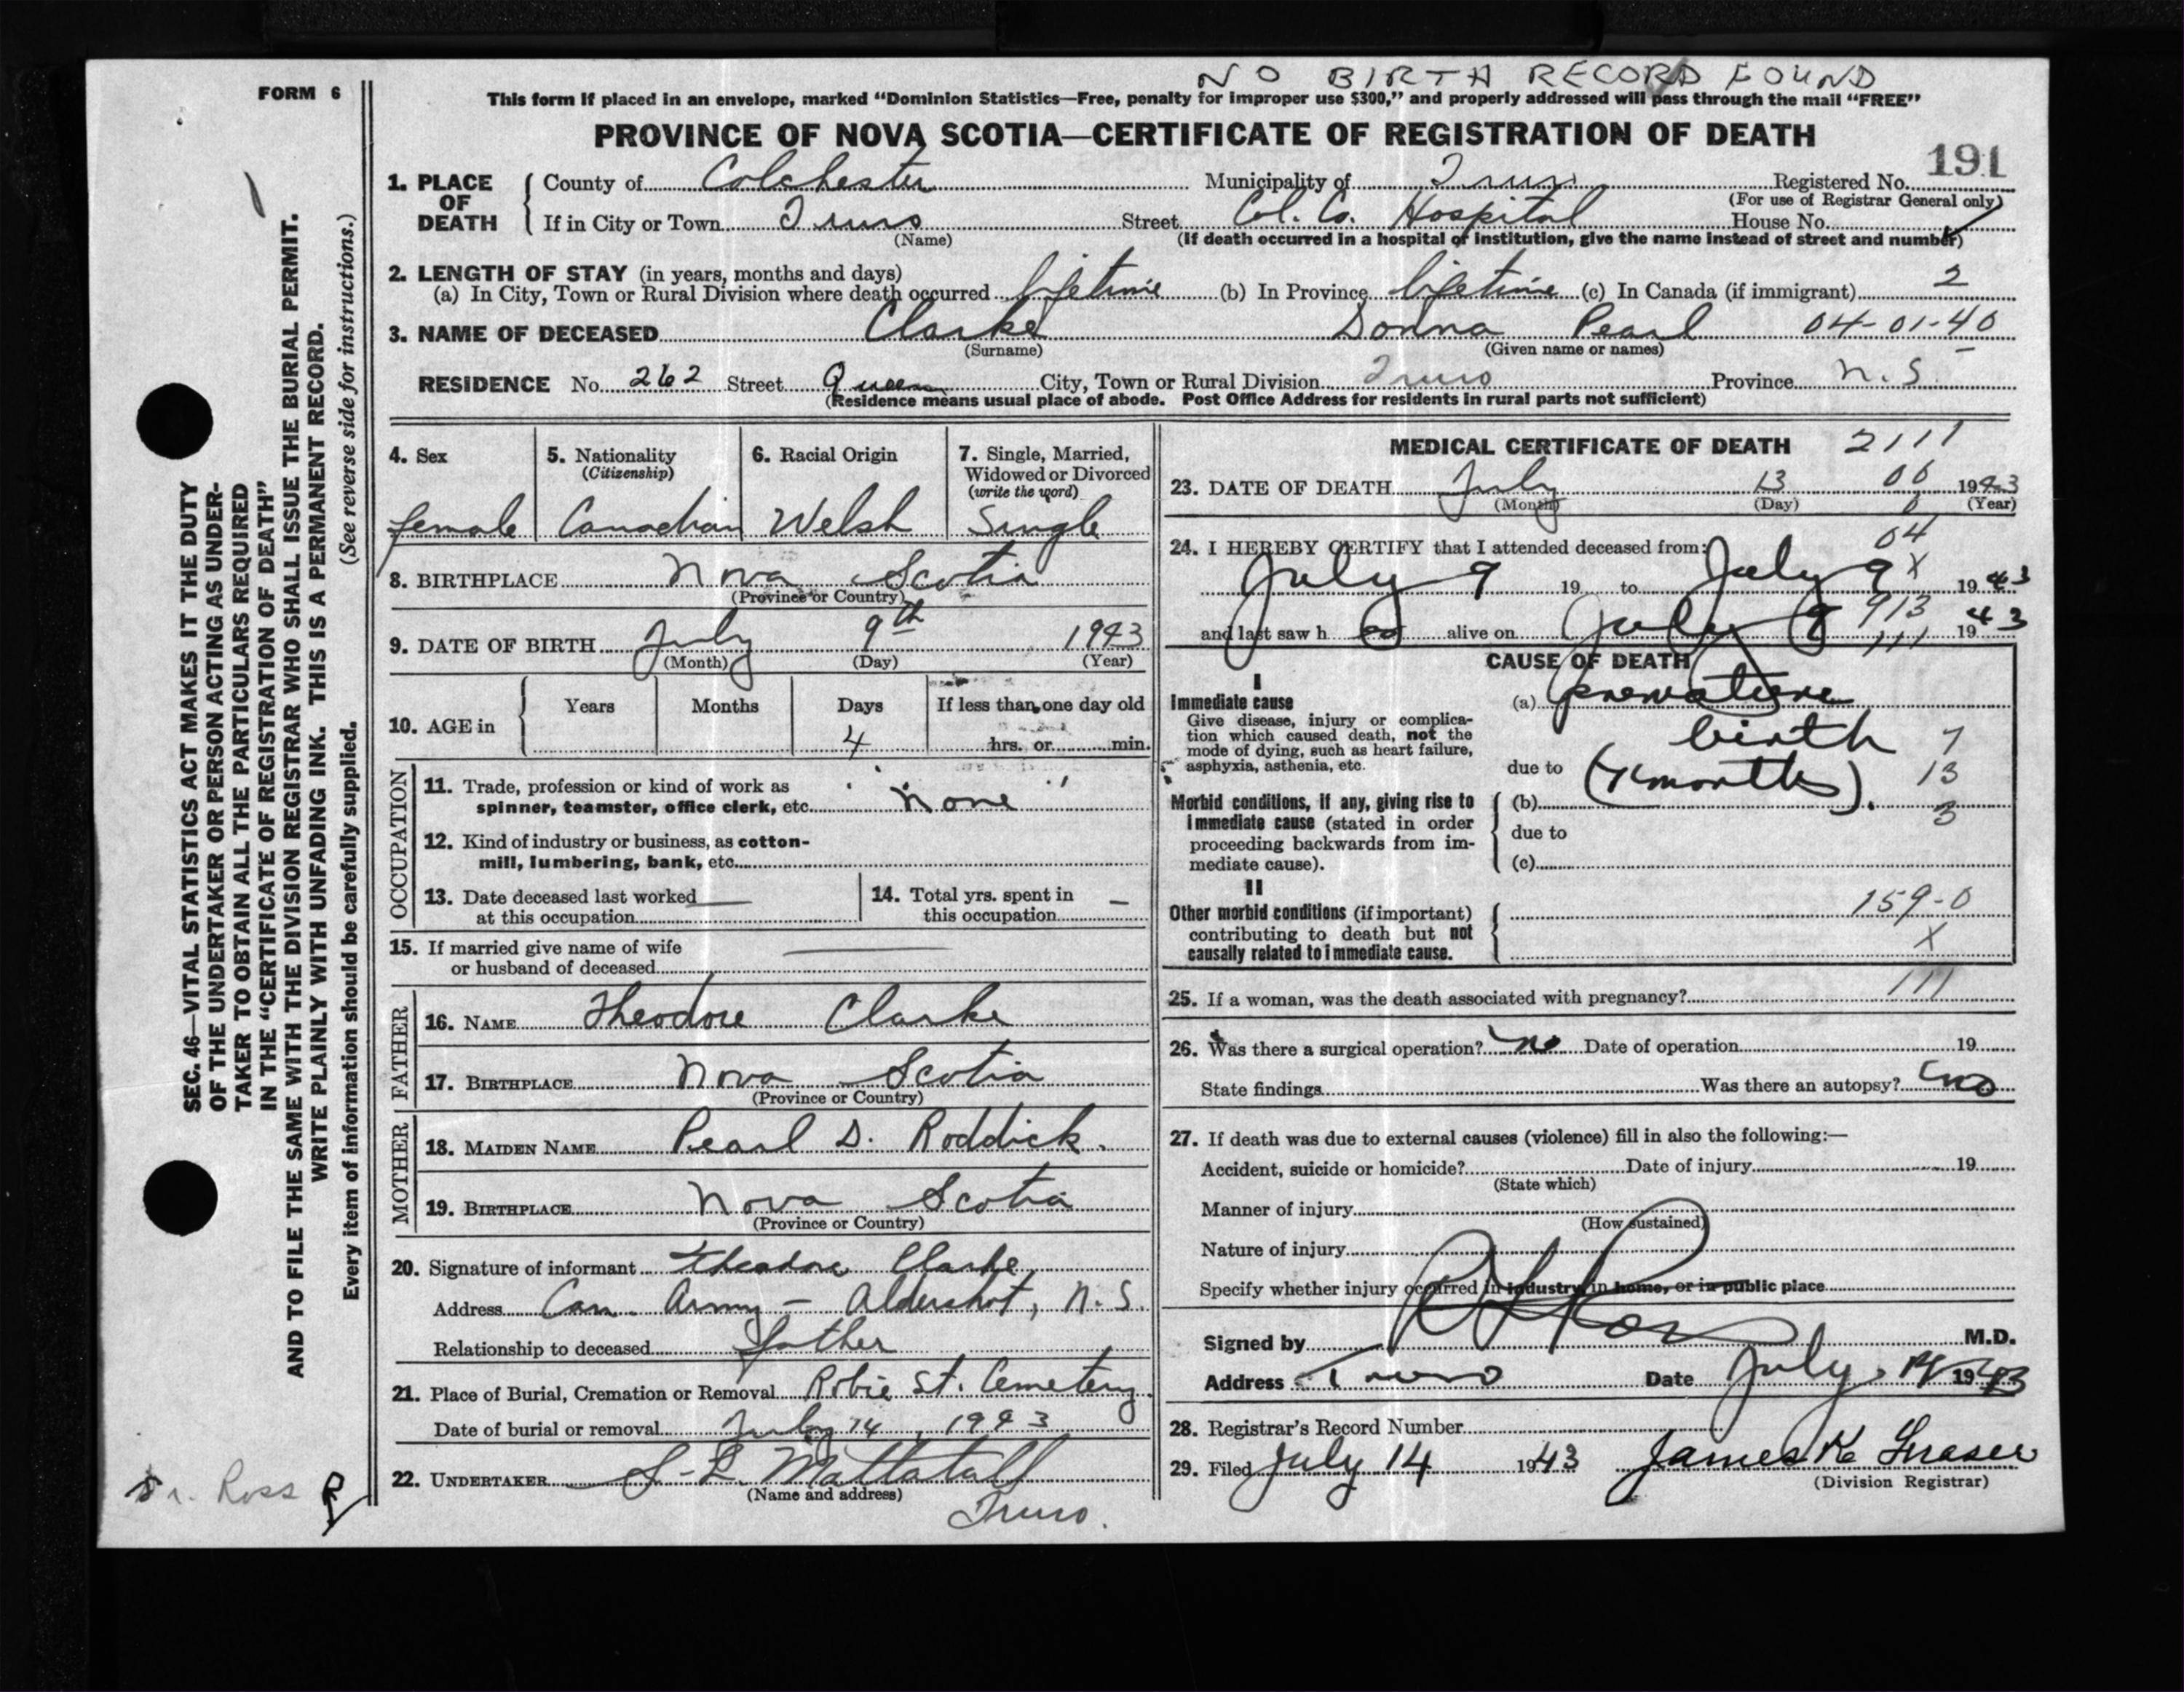 NO BIRTH RECORD FOUND
FORM 6
This form if placed in an envelope, marked “Dominion Statistics—Free, penalty for improper use $300,” and properly addressed will pass through the mail “FREE”
PROVINCE OF NOVA SCOTIA—CERTIFICATE OF REGISTRATION OF DEATH
191
1. PLACE OF DEATH County of Colchester Municipality of Truro Registered No.
(For use of Registrar General only)
If in City or Town Truro Street Col. Co. Hospital House No.
(Name) (If death occurred in a hospital or institution, give the name instead of street and number)
2. LENGTH OF STAY (in years, months and days)
(a) In City, Town or Rural Division where death occurred lifetime (b) In Province lifetime (c) In Canada (if immigrant) 2
3. NAME OF DECEASED Clarke Donna Pearl 04-01-40
(Surname) (Given name or names)
RESIDENCE No. 262 Street Queen City, Town or Rural Division Truro Province N.S.
(Residence means usual place of abode. Post Office Address for residents in rural parts not sufficient)
SEC. 46—VITAL STATISTICS ACT MAKES IT THE DUTY
OF THE UNDERTAKER OR PERSON ACTING AS UNDER-
TAKER TO OBTAIN ALL THE PARTICULARS REQUIRED
IN THE “CERTIFICATE OF REGISTRATION OF DEATH”
AND TO FILE THE SAME WITH THE DIVISION REGISTRAR WHO SHALL ISSUE THE BURIAL PERMIT.
WRITE PLAINLY WITH UNFADING INK. THIS IS A PERMANENT RECORD.
Every item of information should be carefully supplied. (See reverse side for instructions.)
4. Sex 5. Nationality 6. Racial Origin 7. Single, Married,
(Citizenship) Widowed or Divorced
(write the word)
female Canadian Welsh Single
8. BIRTHPLACE Nova Scotia
(Province or Country)
9. DATE OF BIRTH July 9th 1943
(Month) (Day) (Year)
10. AGE in Years Months Days If less than one day old
4 hrs. or min.
OCCUPATION
11. Trade, profession or kind of work as
spinner, teamster, office clerk, etc. "none"
12. Kind of industry or business, as cotton-
mill, lumbering, bank, etc.
13. Date deceased last worked 14. Total yrs. spent in
at this occupation this occupation
15. If married give name of wife
or husband of deceased
FATHER
16. NAME Theodore Clarke
17. BIRTHPLACE Nova Scotia
(Province or Country)
MOTHER
18. MAIDEN NAME Pearl D. Roddick.
19. BIRTHPLACE Nova Scotia
(Province or Country)
20. Signature of informant Theodore Clarke
Address Can. Army - Aldershot, N.S.
Relationship to deceased father
21. Place of Burial, Cremation or Removal Robie St. Cemetery.
Date of burial or removal July 14, 1943
22. UNDERTAKER Mattatall
(Name and address)
Truro.
Dr. Ross
MEDICAL CERTIFICATE OF DEATH 2111
23. DATE OF DEATH July 13 06 1943
(Month) (Day) (Year)
04
24. I HEREBY CERTIFY that I attended deceased from:
July 9 19 to July 9 X 1943
913
and last saw h alive on July 9 1943
111
CAUSE OF DEATH
I
Immediate cause (a) premature
Give disease, injury or complica-
tion which caused death, not the
mode of dying, such as heart failure,
asphyxia, asthenia, etc.
birth 7
due to (7 months). 13
Morbid conditions, if any, giving rise to (b) 3
immediate cause (stated in order due to
proceeding backwards from im-
mediate cause). (c)
II
Other morbid conditions (if important) 159-0
contributing to death but not X
causally related to immediate cause.
25. If a woman, was the death associated with pregnancy? 111
26. Was there a surgical operation? no Date of operation 19
State findings Was there an autopsy? no
27. If death was due to external causes (violence) fill in also the following:—
Accident, suicide or homicide? Date of injury 19
(State which)
Manner of injury
(How sustained)
Nature of injury
Specify whether injury occurred in industry, in home, or in public place
Signed by Ross M.D.
Address Truro Date July 1943
28. Registrar's Record Number
29. Filed July 14 1943 James K Fraser
(Division Registrar)